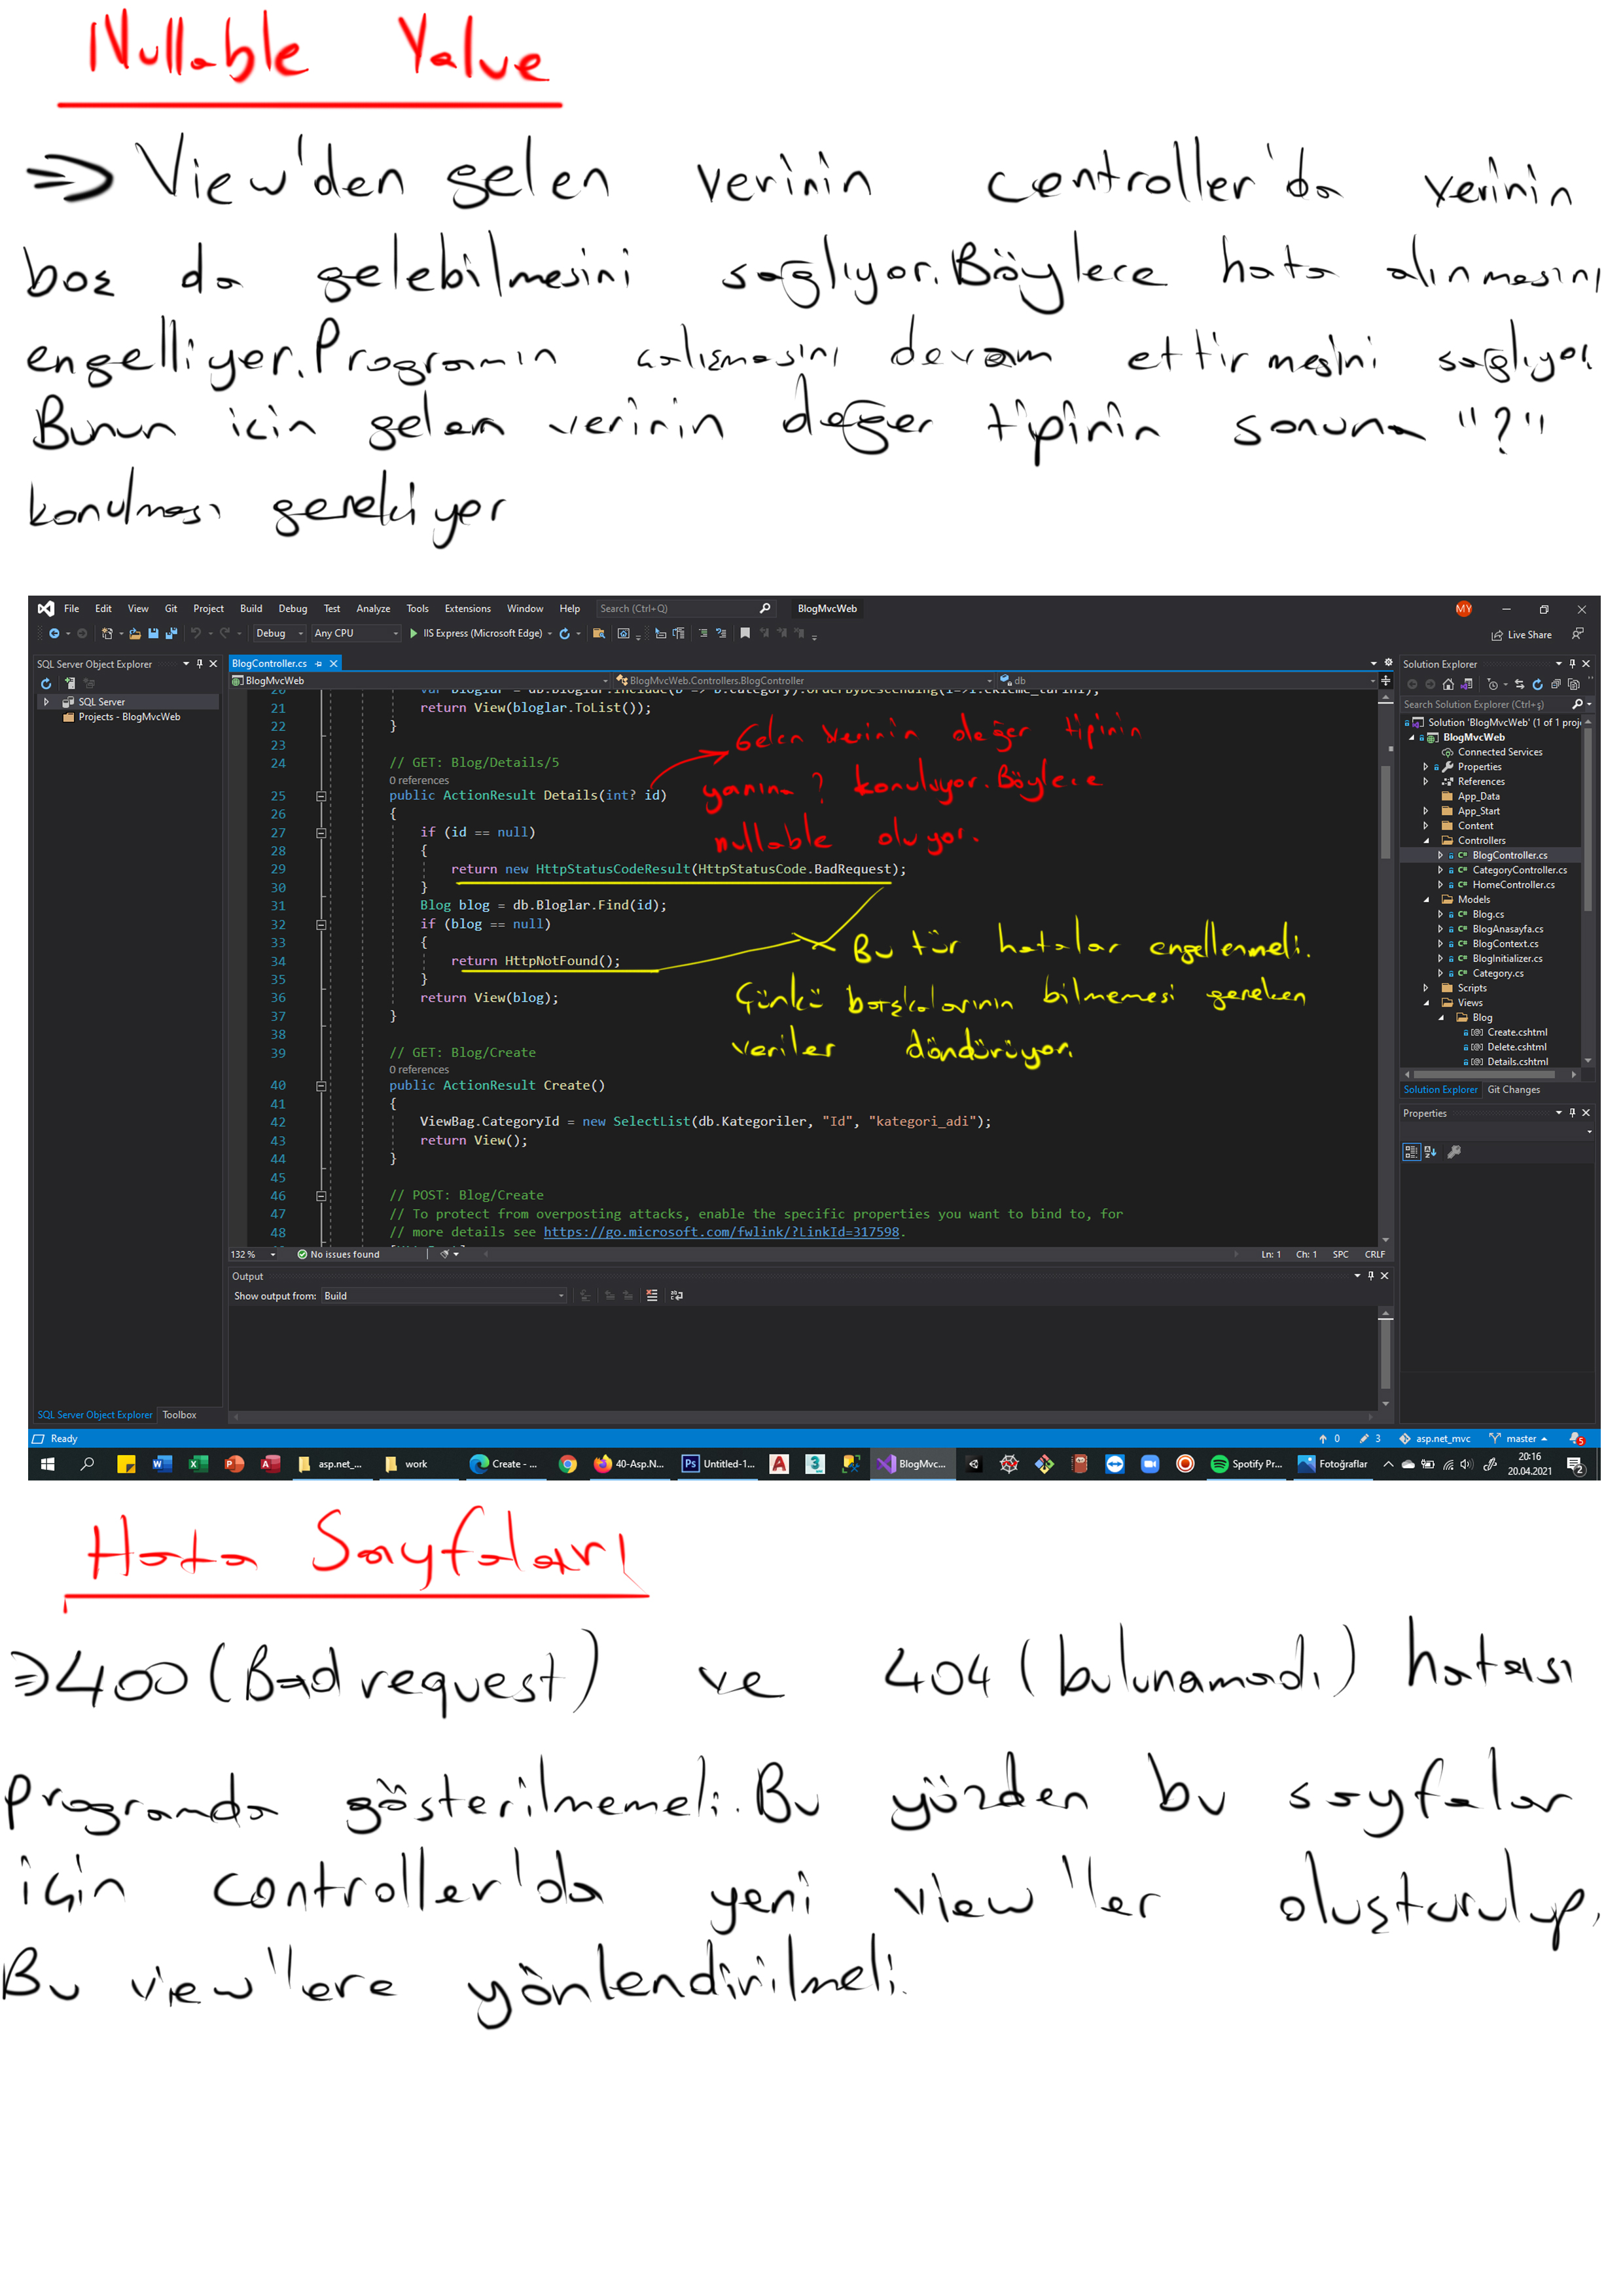 Nullable Value
=> View'den gelen verinin controller'da verinin
boş da gelebilmesini sağlıyor. Böylece hata alınmasını
engelliyor. Programın çalışmasını devam ettirmesini sağlıyor.
Bunun için gelen verinin değer tipinin sonuna "?"
konulması gerekiyor
File Edit View Git Project Build Debug Test Analyze Tools Extensions Window Help Search (Ctrl+Q) BlogMvcWeb MY
Debug Any CPU IIS Express (Microsoft Edge) Live Share
SQL Server Object Explorer
SQL Server
Projects - BlogMvcWeb
BlogController.cs
BlogMvcWeb BlogMvcWeb.Controllers.BlogController db
21 return View(bloglar.ToList());
22 }
23
24 // GET: Blog/Details/5
0 references
25 public ActionResult Details(int? id)
26 {
27 if (id == null)
28 {
29 return new HttpStatusCodeResult(HttpStatusCode.BadRequest);
30 }
31 Blog blog = db.Bloglar.Find(id);
32 if (blog == null)
33 {
34 return HttpNotFound();
35 }
36 return View(blog);
37 }
38
39 // GET: Blog/Create
0 references
40 public ActionResult Create()
41 {
42 ViewBag.CategoryId = new SelectList(db.Kategoriler, "Id", "kategori_adi");
43 return View();
44 }
45
46 // POST: Blog/Create
47 // To protect from overposting attacks, enable the specific properties you want to bind to, for
48 // more details see https://go.microsoft.com/fwlink/?LinkId=317598.
Gelen verinin değer tipinin
yanına ? konuluyor. Böylece
nullable oluyor.
Bu tür hatalar engellenmeli.
Çünkü başkalarının bilmemesi gereken
veriler döndürüyor.
132 % No issues found Ln: 1 Ch: 1 SPC CRLF
Output
Show output from: Build
Solution Explorer
Search Solution Explorer (Ctrl+ş)
Solution 'BlogMvcWeb' (1 of 1 proj
BlogMvcWeb
Connected Services
Properties
References
App_Data
App_Start
Content
Controllers
BlogController.cs
CategoryController.cs
HomeController.cs
Models
Blog.cs
BlogAnasayfa.cs
BlogContext.cs
BlogInitializer.cs
Category.cs
Scripts
Views
Blog
Create.cshtml
Delete.cshtml
Details.cshtml
Solution Explorer Git Changes
Properties
SQL Server Object Explorer Toolbox
Ready 0 3 asp.net_mvc master 5
asp.net_... work Create - ... 40-Asp.N... Ps Untitled-1... BlogMvc... Spotify Pr... Fotoğraflar 20:16
20.04.2021 2
Hata Sayfaları
=> 400 (Bad request) ve 404 (bulunamadı) hatası
programda gösterilmemeli. Bu yüzden bu sayfalar
için controller'da yeni view'ler oluşturulup,
Bu view'lere yönlendirilmeli.